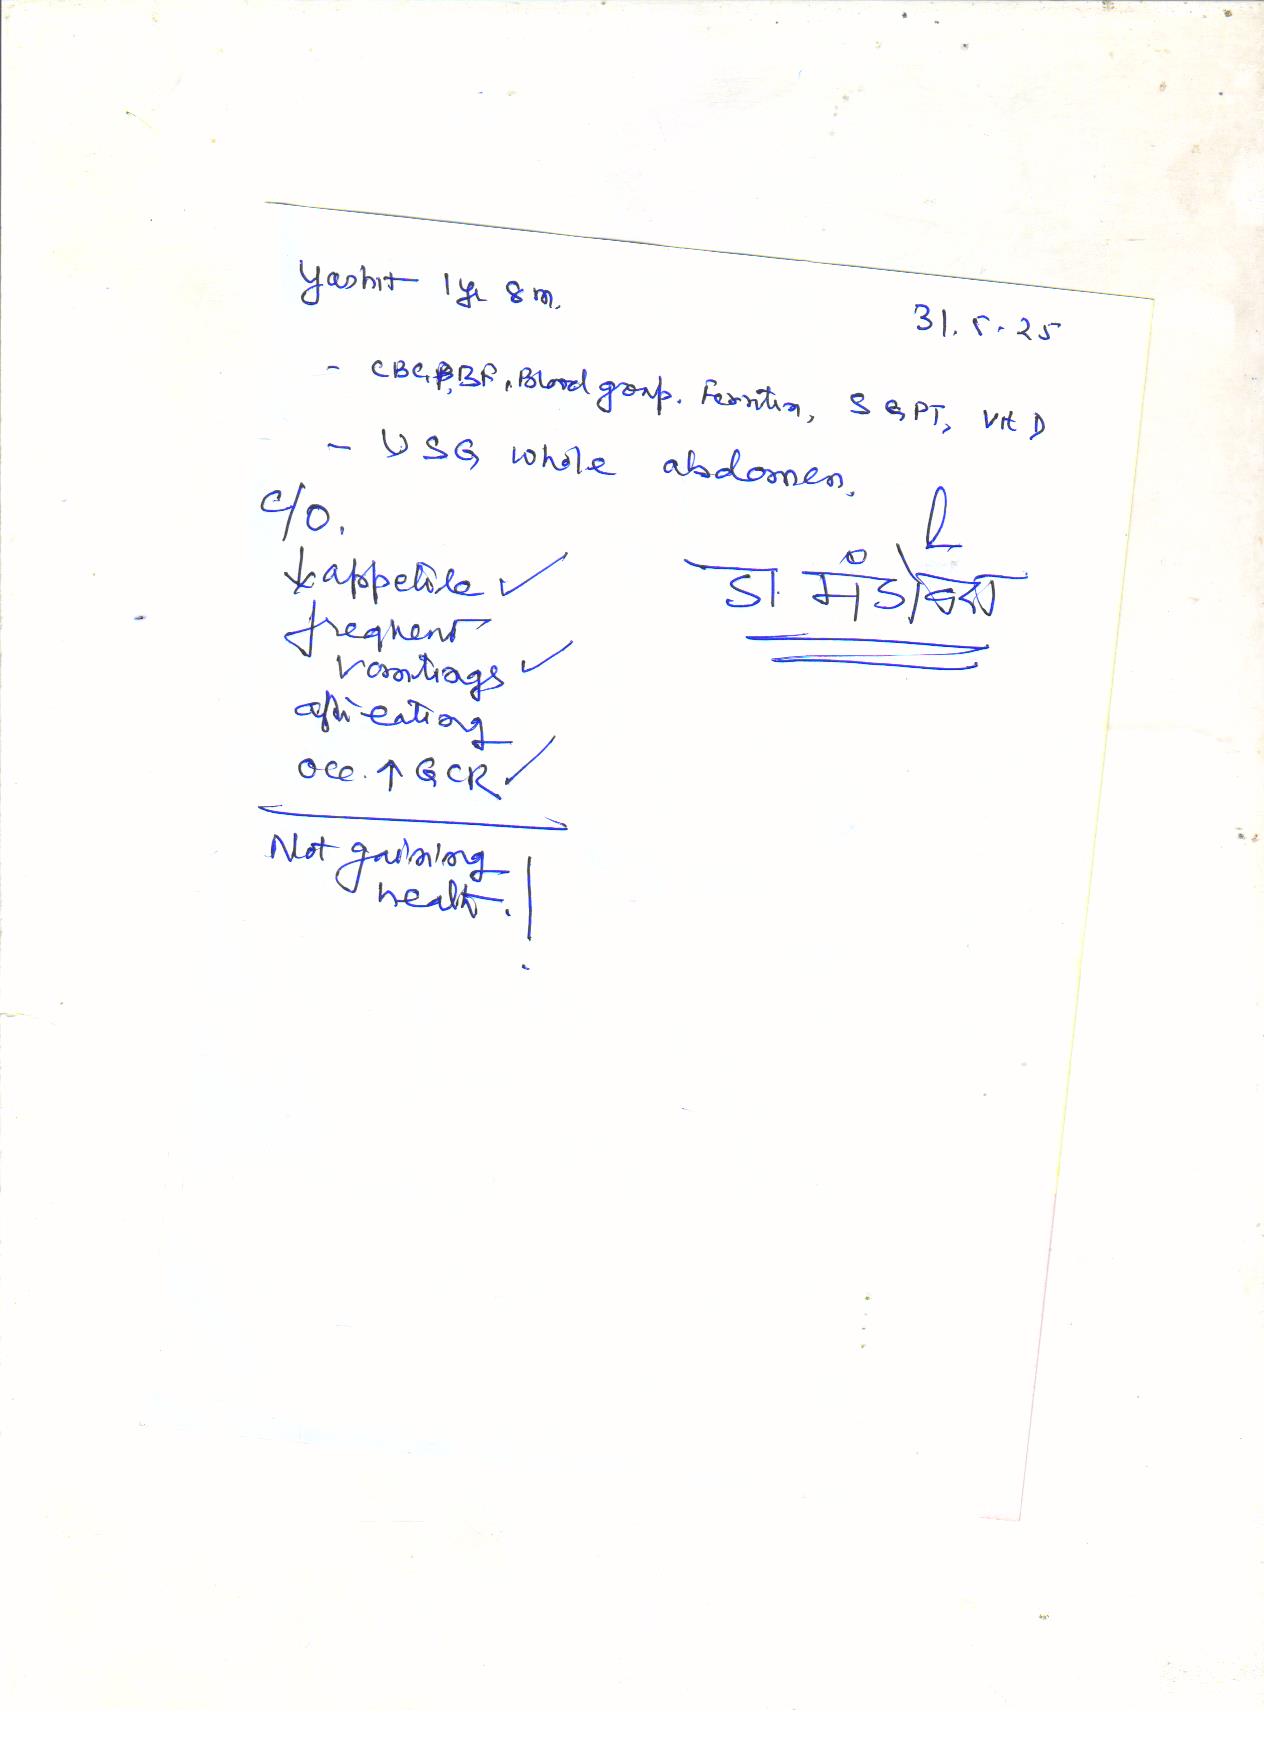 Yashit 1 yr 8 m.
31.5.25
- CBC, PBF, Blood group. Ferritin, SGPT, Vit D
- USG whole abdomen.
c/o.
↓ appetite ✓
frequent
vomitings ✓
after eating
occ. ↑ GCR ✓
Not gaining
health.
डा